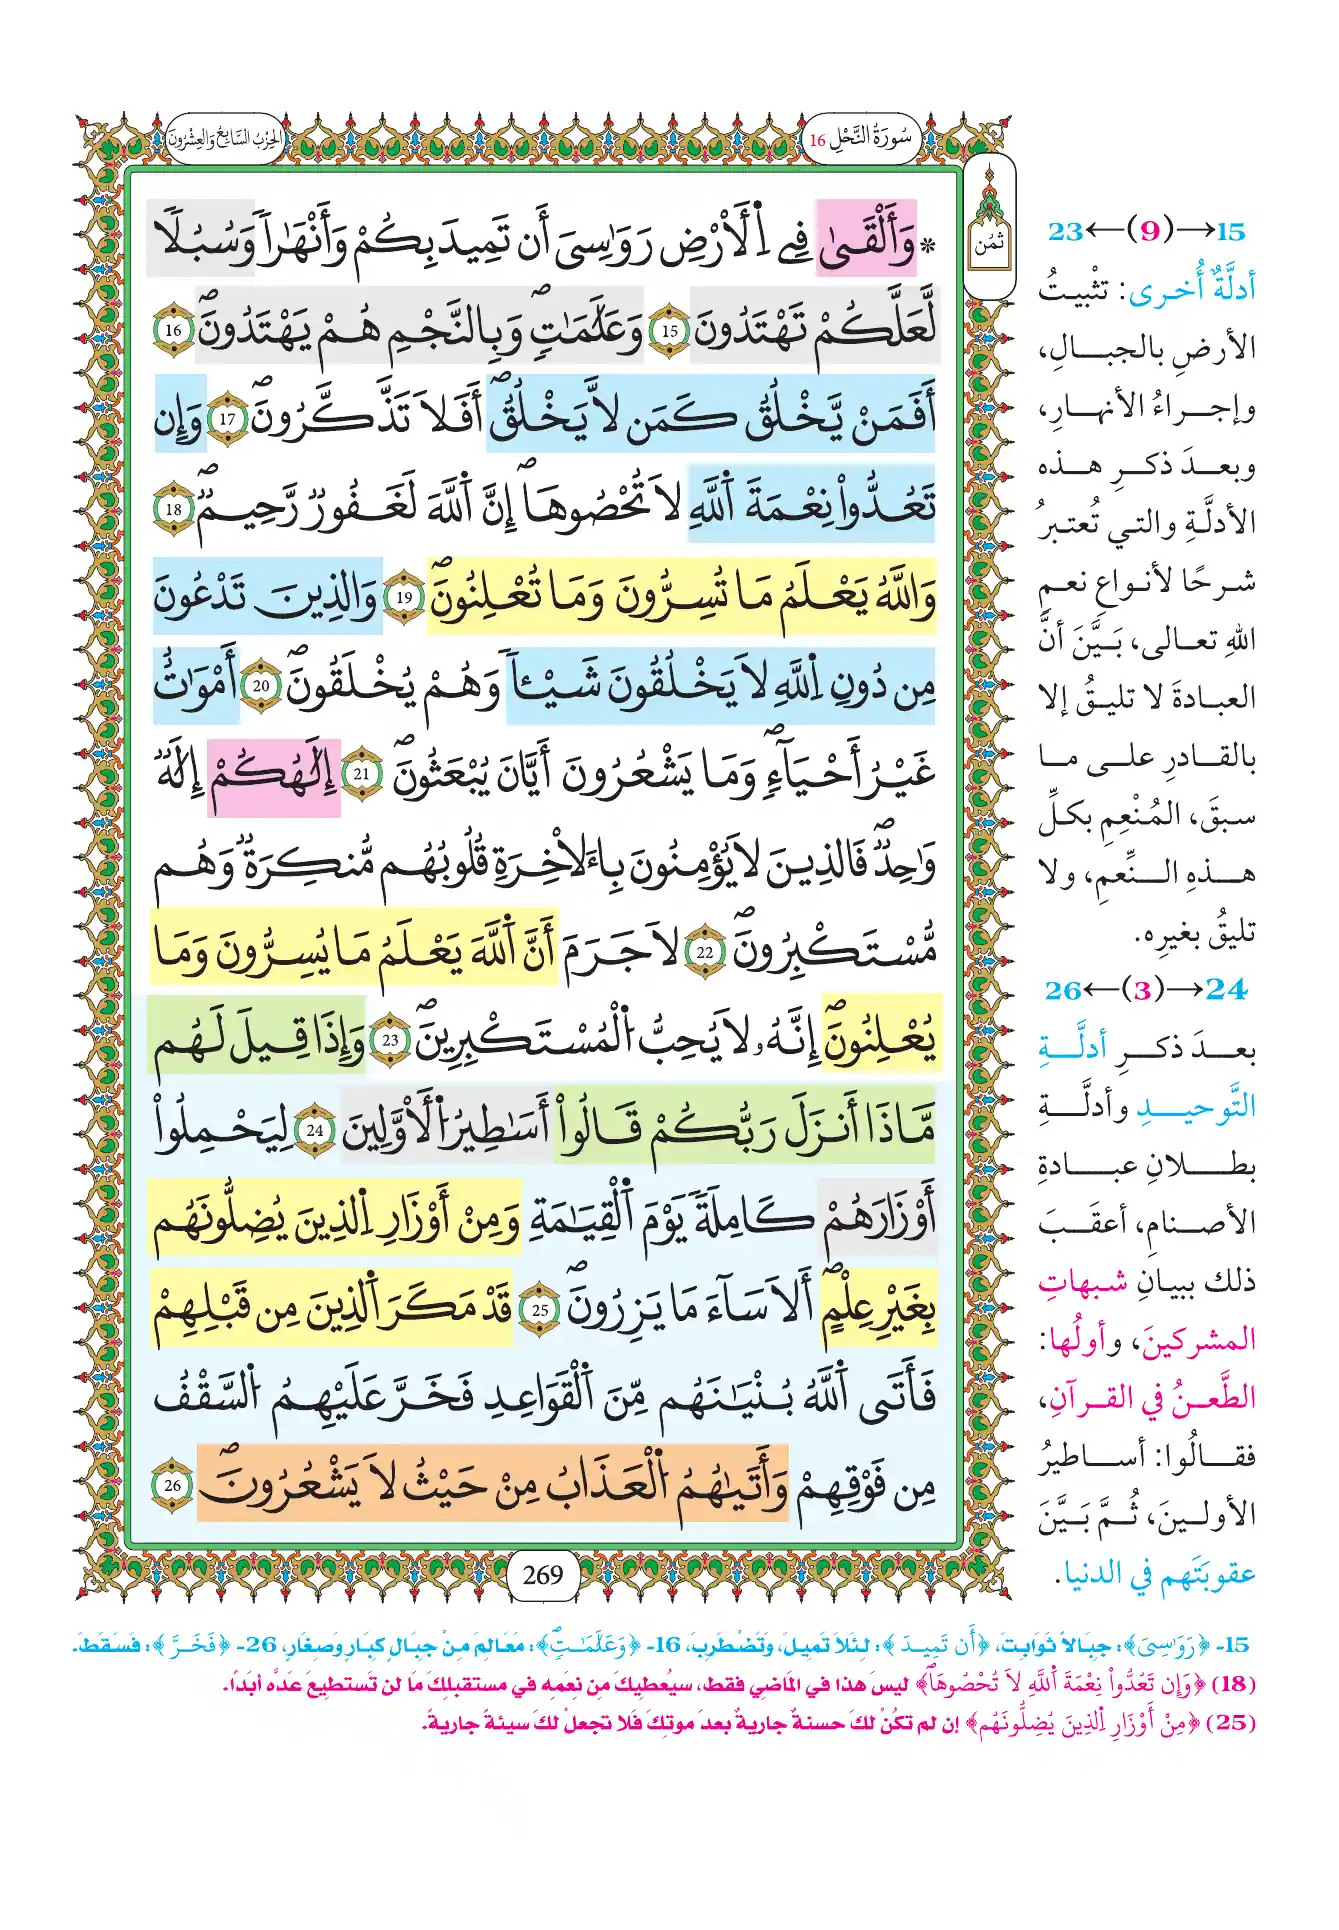 سُورَةُ النَّحْلِ 16
الحِزْبُ السَّابِعُ وَالعِشْرُونَ
ثمُن
* وَأَلْقَىٰ فِے اِ۬لَارْضِ رَوَٰسِىَ أَن تَمِيدَ بِكُمْ وَأَنْهَٰراٗ وَسُبُلاٗ
لَّعَلَّكُمْ تَهْتَدُونَ 15 وَعَلَٰمَٰتٖۖ وَبِالنَّجْمِ هُمْ يَهْتَدُونَۖ 16
أَفَمَنْ يَّخْلُقُ كَمَن لاَّ يَخْلُقُۖ أَفَلَا تَذَّكَّرُونَۖ 17 وَإِن
تَعُدُّواْ نِعْمَةَ اَ۬للَّهِ لَا تُحْصُوهَاۖ إِنَّ اَ۬للَّهَ لَغَفُورٞ رَّحِيمٞۖ 18
وَاللَّهُ يَعْلَمُ مَا تُسِرُّونَ وَمَا تُعْلِنُونَۖ 19 وَالذِينَ تَدْعُونَ
مِن دُونِ اِ۬للَّهِ لَا يَخْلُقُونَ شَيْـٔاٗ وَهُمْ يُخْلَقُونَۖ 20 أَمْوَٰتٌ
غَيْرُ أَحْيَآءٖۖ وَمَا يَشْعُرُونَ أَيَّانَ يُبْعَثُونَۖ 21 إِلَٰهُكُمْ إِلَٰهٞ
وَٰحِدٞۖ فَالذِينَ لَا يُؤْمِنُونَ بِاءَلَاخِرَةِ قُلُوبُهُم مُّنكِرَةٞ وَهُم
مُّسْتَكْبِرُونَۖ 22 لَا جَرَمَ أَنَّ اَ۬للَّهَ يَعْلَمُ مَا يُسِرُّونَ وَمَا
يُعْلِنُونَۖ إِنَّهُۥ لَا يُحِبُّ اُ۬لْمُسْتَكْبِرِينَۖ 23 وَإِذَا قِيلَ لَهُم
مَّاذَا أَنزَلَ رَبُّكُمْ قَالُواْ أَسَٰطِيرُ اُ۬لَاوَّلِينَ 24 لِيَحْمِلُواْ
أَوْزَارَهُمْ كَامِلَةٗ يَوْمَ اَ۬لْقِيَٰمَةِ وَمِنْ أَوْزَارِ اِ۬لذِينَ يُضِلُّونَهُم
بِغَيْرِ عِلْمٍۖ أَلَا سَآءَ مَا يَزِرُونَۖ 25 قَدْ مَكَرَ اَ۬لذِينَ مِن قَبْلِهِمْ
فَأَتَى اَ۬للَّهُ بُنْيَٰنَهُم مِّنَ اَ۬لْقَوَاعِدِ فَخَرَّ عَلَيْهِمُ اُ۬لسَّقْفُ
مِن فَوْقِهِمْ وَأَتَىٰهُمُ اُ۬لْعَذَابُ مِنْ حَيْثُ لَا يَشْعُرُونَۖ 26
269
15→(9)←23
أدلَّةٌ أُخرى: تثْبيتُ
الأرضِ بالجبالِ،
وإجراءُ الأنهارِ،
وبعدَ ذكرِ هذه
الأدلَّةِ والتي تُعتبرُ
شرحًا لأنواعِ نعمِ
اللهِ تعالى، بَيَّنَ أنَّ
العبادةَ لا تليقُ إلا
بالقادرِ على ما
سبقَ، المُنْعِمِ بكلِّ
هذهِ النِّعمِ، ولا
تليقُ بغيرِه.
24→(3)←26
بعدَ ذكرِ أدلَّةِ
التَّوحيدِ وأدلَّةِ
بطلانِ عبادةِ
الأصنامِ، أعقَبَ
ذلك ببيانِ شبهاتِ
المشركينَ، وأولُها:
الطَّعنُ في القرآنِ،
فقالُوا: أساطيرُ
الأولينَ، ثُمَّ بَيَّنَ
عقوبتَهم في الدنيا.
15- ﴿رَوَٰسِىَ﴾: جِبَالاً ثَوَابِتَ، ﴿أَن تَمِيدَ﴾: لِئَلاَّ تَمِيلَ، وَتَضْطَرِبَ، 16- ﴿وَعَلَٰمَٰتٖۖ﴾: مَعَالِمَ مِنْ جِبَالٍ كِبَارٍ وَصِغَارٍ، 26- ﴿فَخَرَّ﴾: فَسَقَطَ.
(18) ﴿وَإِن تَعُدُّواْ نِعْمَةَ اَ۬للَّهِ لَا تُحْصُوهَاۖ﴾ ليسَ هذا في الماضي فقط، سيُعطيكَ مِن نِعَمِه في مستقبلِكَ مَا لن تَستطيعَ عدَّه أبداً.
(25) ﴿مِنْ أَوْزَارِ اِ۬لذِينَ يُضِلُّونَهُم﴾ إن لم تكُنْ لكَ حسنةٌ جاريةٌ بعدَ موتِكَ فَلا تجعلْ لكَ سيئةً جاريةً.